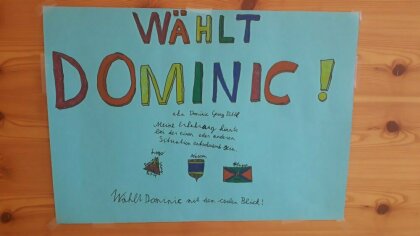 WÄHLT
DOMINIC !
aka Dominic Georg
Meine Erfahrung könnte
bei der einen oder anderen
Situation
Wählt Dominic mit dem coolen Blick!